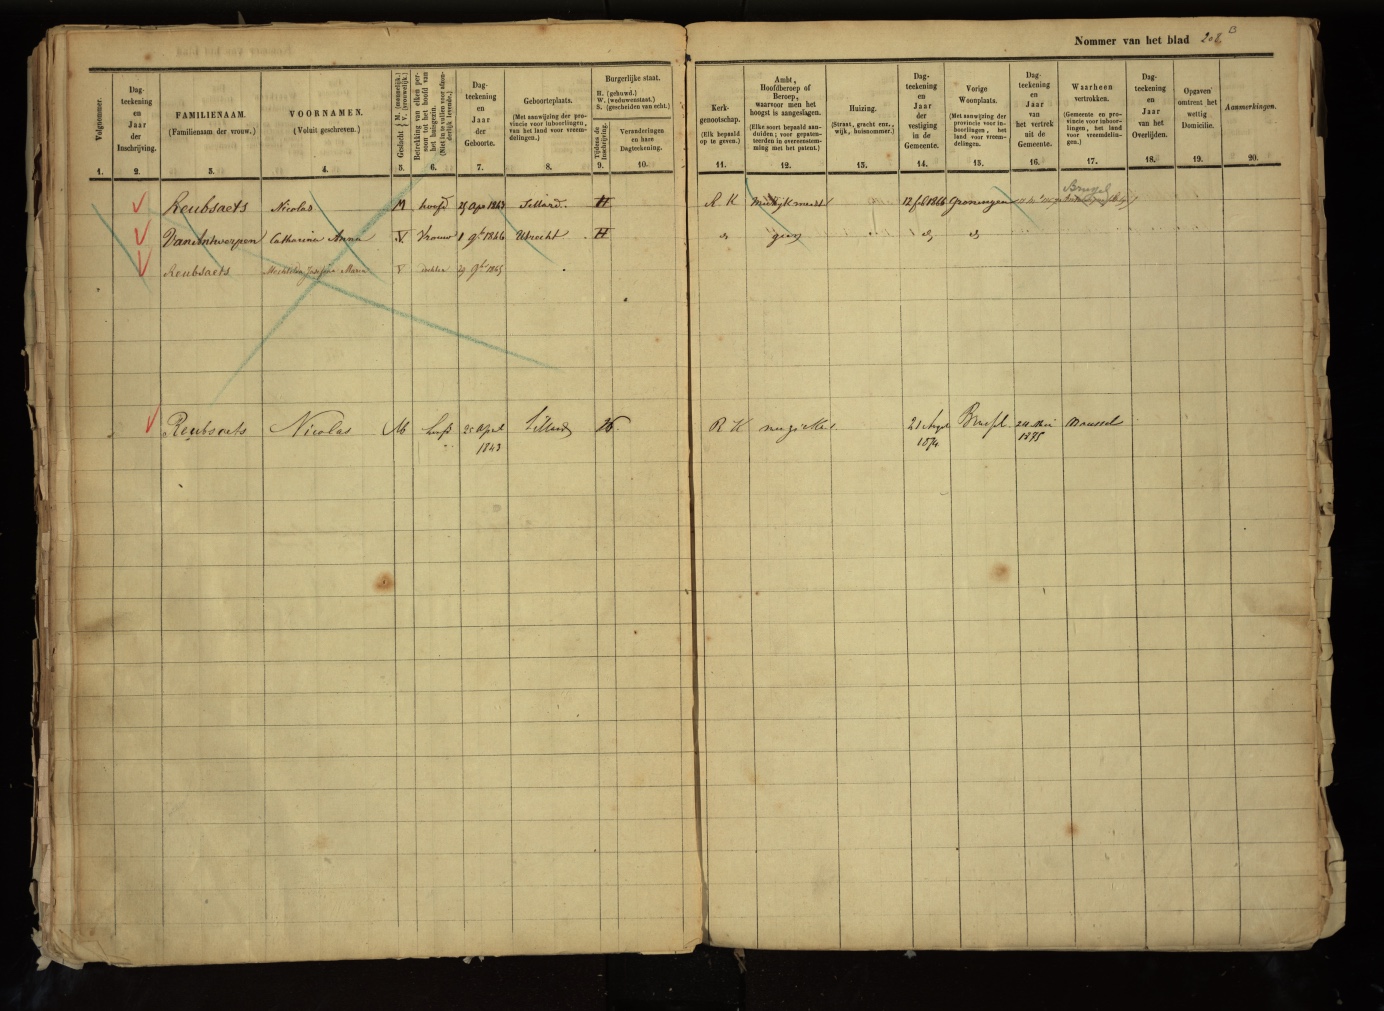 Nommer van het blad 208 B
Volgnommer.
Dag-
teekening
en
Jaar
der
Inschrijving.
FAMILIENAAM.
(Familienaam der vrouw.)
VOORNAMEN.
(Voluit geschreven.)
Geslacht { M. (mannelijk.)
V. (vrouwelijk.)
Betrekking van elken per-
soon tot het hoofd van
het huisgezin.
(Niet in te vullen voor afzon-
derlijk levende.)
Dag-
teekening
en
Jaar
der
Geboorte.
Geboorteplaats.
(Met aanwijzing der pro-
vincie voor inboorlingen,
van het land voor vreem-
delingen.)
Burgerlijke staat.
H. (gehuwd.)
W. (weduwenstaat.)
S. (gescheiden van echt.)
Tijdens de
Inschrijving.
Veranderingen
en hare
Dagteekening.
Kerk-
genootschap.
(Elk bepaald
op te geven.)
Ambt,
Hoofdberoep of
Beroep,
waarvoor men het
hoogst is aangeslagen.
(Elke soort bepaald aan-
duiden; voor gepaten-
teerden in overeenstem-
ming met het patent.)
Huizing.
(Straat, gracht enz.,
wijk, huisnommer.)
Dag-
teekening
en
Jaar
der
vestiging
in de
Gemeente.
Vorige
Woonplaats.
(Met aanwijzing der
provincie voor in-
boorlingen, het
land voor vreem-
delingen.)
Dag-
teekening
en
Jaar
van
het vertrek
uit de
Gemeente.
Waarheen
vertrokken.
(Gemeente en pro-
vincie voor inboor-
lingen, het land
voor vreemdelin-
gen.)
Dag-
teekening
en
Jaar
van het
Overlijden.
Opgaven
omtrent het
wettig
Domicilie.
Aanmerkingen.
1. 2. 3. 4. 5. 6. 7. 8. 9. 10. 11. 12. 13. 14. 15. 16. 17. 18. 19. 20.
Reubsaets Nicolas M hoofd 25 Apr 1843 Sittard. H R K Muzijkmeest 12 feb 1866 Groningen Brussel
Van Antwerpen Catharina Anna V. Vrouw 1 9br 1846 Utrecht H geen
Reubsaets Mechtilda Josefina Maria V dochter 29 9br 1865
Reubsaets Nicolas M hoofd 25 April Sittard H. R K muzikes 21 Brussel 24 Mei Brussel
1843 1874 1875